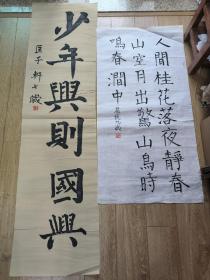 少年興則國興
子軒七歲
人間桂花落夜靜春
山空月出驚山鳥時
鳴春澗中